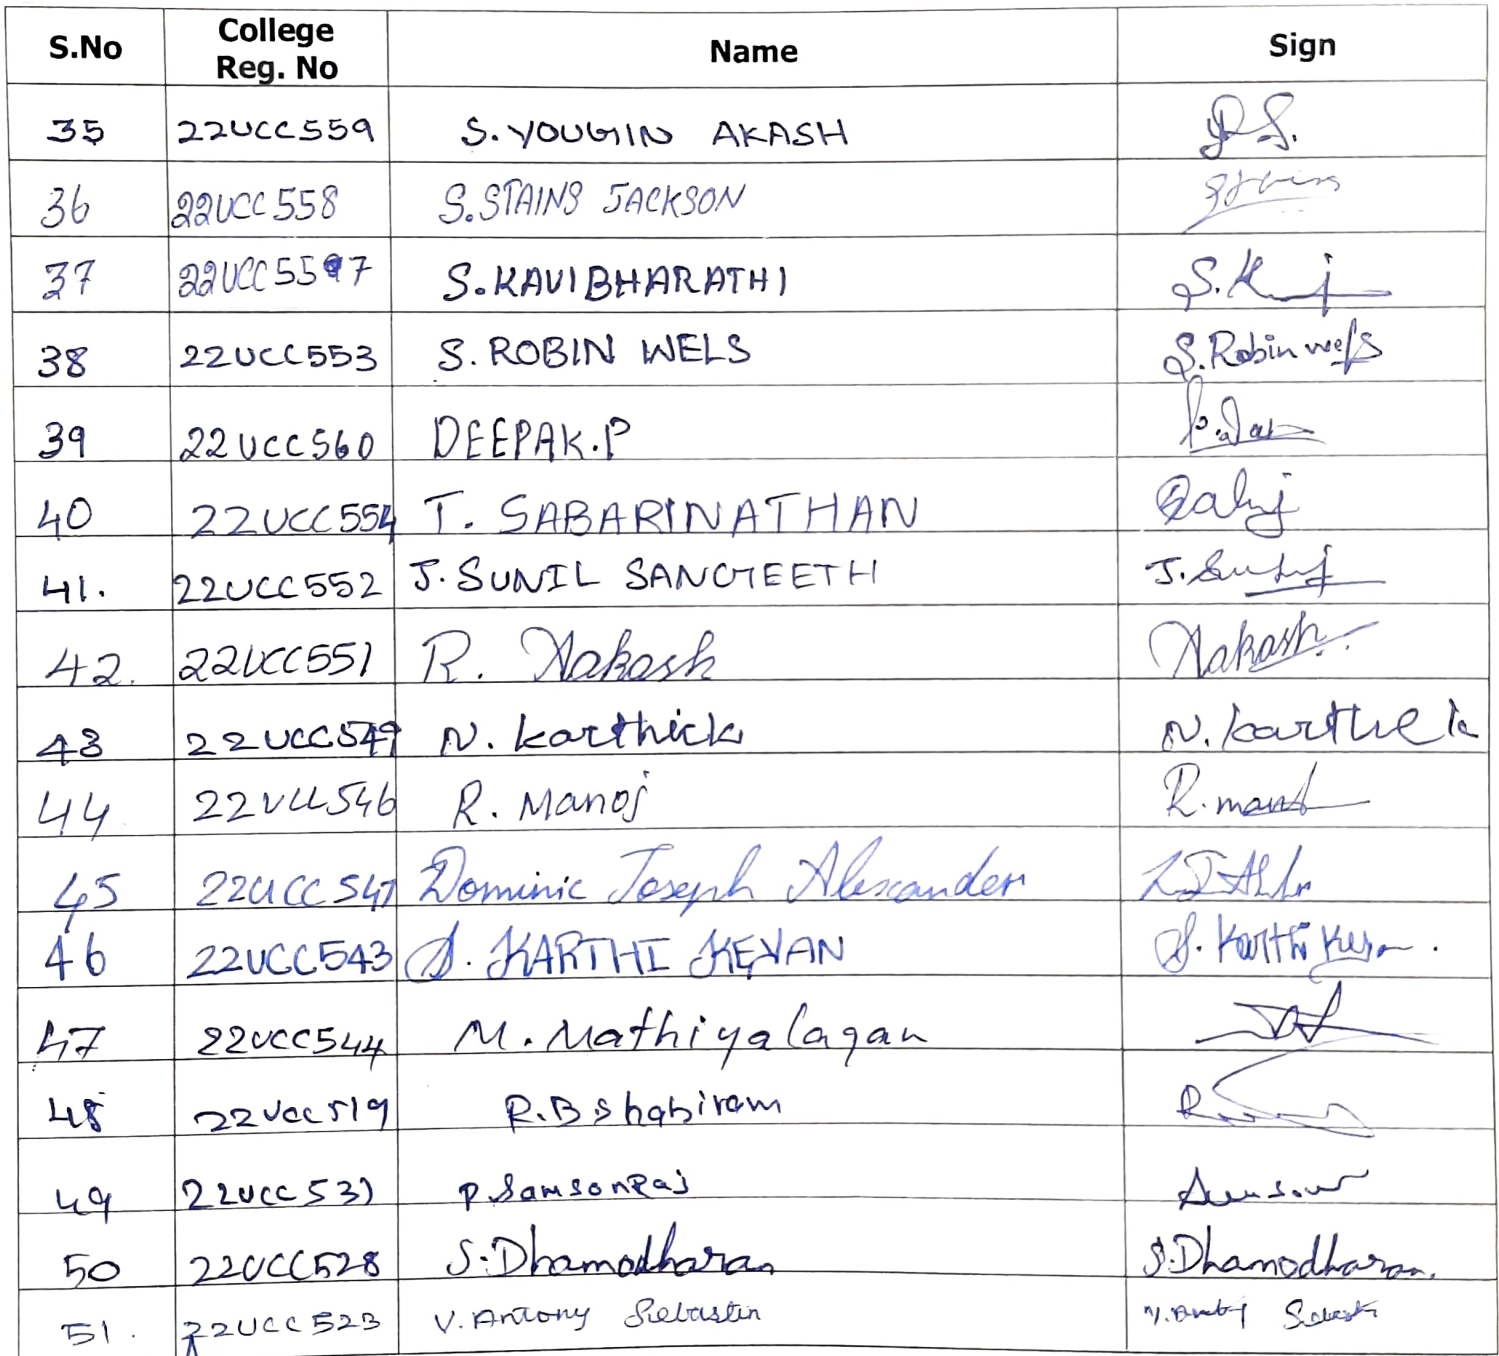 S.No College Reg. No Name Sign
35 22UCC559 S. YOUGIN AKASH
36 22UCC558 S. STAINS JACKSON Stains
37 22UCC557 S. KAVIBHARATHI S.K
38 22UCC553 S. ROBIN WELS S. Robin wels
39 22UCC560 DEEPAK.P
40 22UCC554 T. SABARINATHAN
41. 22UCC552 J. SUNIL SANGEETH
42. 22UCC551 R. Aakash Aakash
43 22UCC549 N. Karthick N. Karthick
44 22UCC546 R. Manoj
45 22UCC547 Dominic Joseph Alexander
46 22UCC543 S. KARTHI KEYAN
47 22UCC544 M. Mathiyalagan
48 22UCC519 R.B shabiram
49 22UCC531 P. Samson Raj
50 22UCC528 S. Dhamodharan S. Dhamodharan.
51. 22UCC523 V. Antony Sebastin